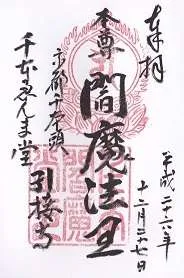 奉拝
平成二十六年
十二月二十七日
本尊
閻魔法王
京都千本頭
引接寺
千本ゑんま堂